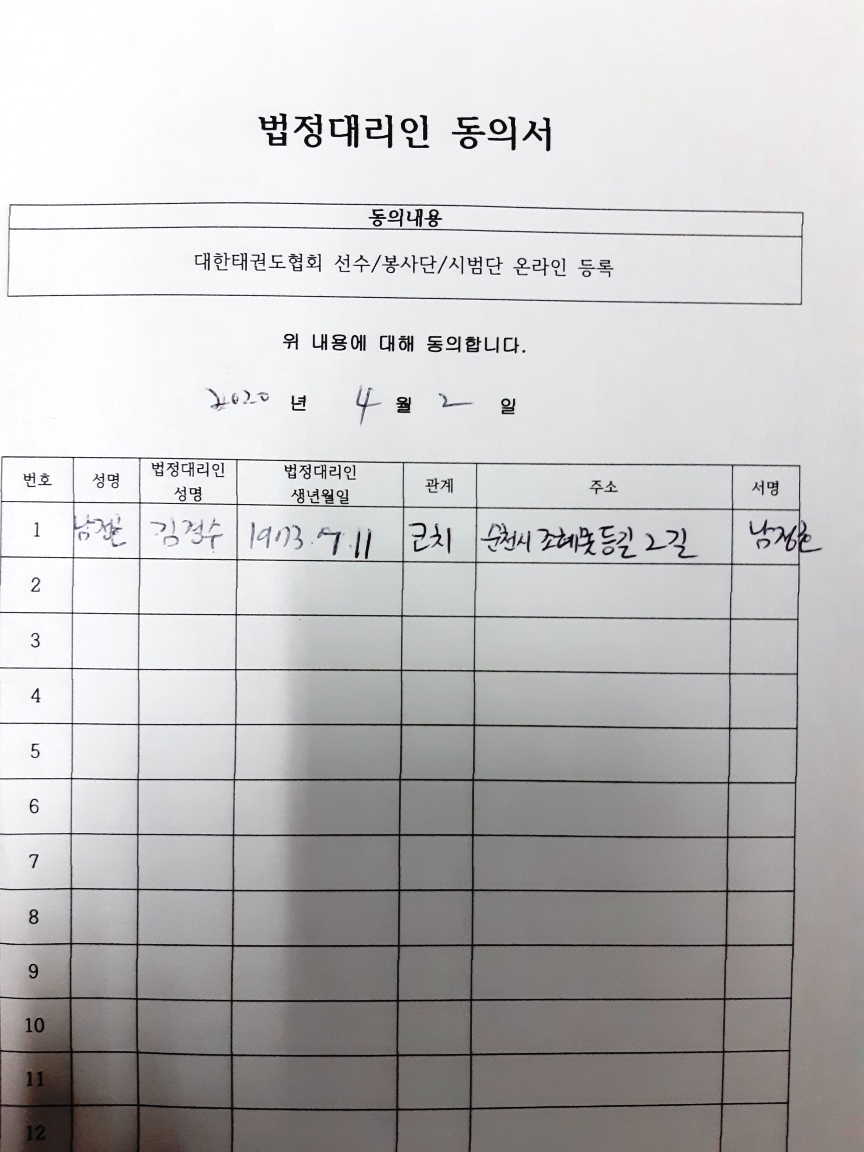 법정대리인 동의서
동의내용
대한태권도협회 선수/봉사단/시범단 온라인 등록
위 내용에 대해 동의합니다.
2020 년 4 월 2 일
번호 성명 법정대리인 성명 법정대리인 생년월일 관계 주소 서명
1 김정수 1973.7.11 코치 순천시 2길
2
3
4
5
6
7
8
9
10
11
12